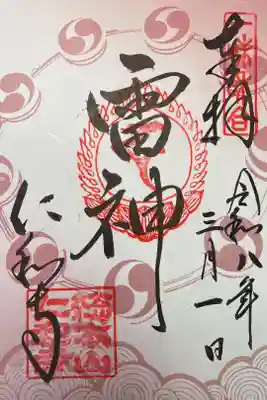 奉拝
令和八年
三月一日
雷神
仁和寺